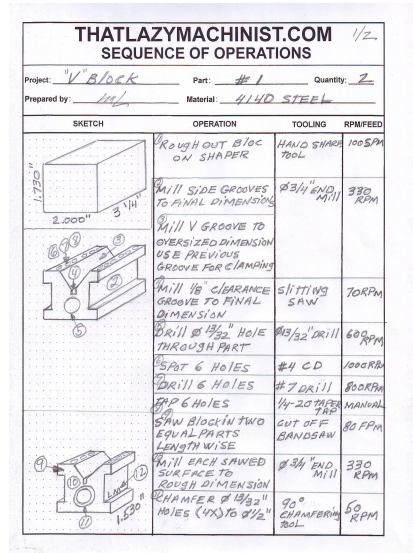 THATLAZYMACHINIST.COM 1/2
SEQUENCE OF OPERATIONS
Project: "V" Block Part: #1 Quantity: 2
Prepared by: Material: 4140 STEEL
SKETCH OPERATION TOOLING RPM/FEED
1.730"
2.000"
3 1/4"
① ROUGH OUT BLOC
ON SHAPER
HAND SHARP
TOOL
100SPM
② Mill SIDE GROOVES
TO FINAL DIMENSION
Ø3/4" END
Mill
330
RPM
③ Mill V GROOVE TO
OVERSIZED DIMENSION
USE PREVIOUS
GROOVE FOR CLAMPING
④ Mill 1/8" CLEARANCE
GROOVE TO FINAL
DIMENSION
SlittiNg
SAW
70RPM
⑤ DRILL Ø 13/32" HOLE
THROUGH PART
Ø13/32" DRILL
600
RPM
⑥ SPOT 6 HOLES
#4 CD
1000RPM
⑦ DRILL 6 HOLES
#7 DRILL
800RPM
⑧ TAP 6 HOLES
1/4-20 TAPER
TAP
MANUAL
⑨ SAW BLOCK IN TWO
EQUAL PARTS
LENGTH WISE
CUT OFF
BANDSAW
80 FPM
⑩ Mill EACH SAWED
SURFACE TO
ROUGH DIMENSION
Ø 3/4" END
Mill
330
RPM
⑪ CHAMFER Ø 13/32"
HOLES (4X) TO Ø 1/2"
90°
CHAMFERING
TOOL
50
RPM
⑥ ⑦ ⑧
③
④
②
⑤
⑨
⑩
⑫
⑪
1.530"